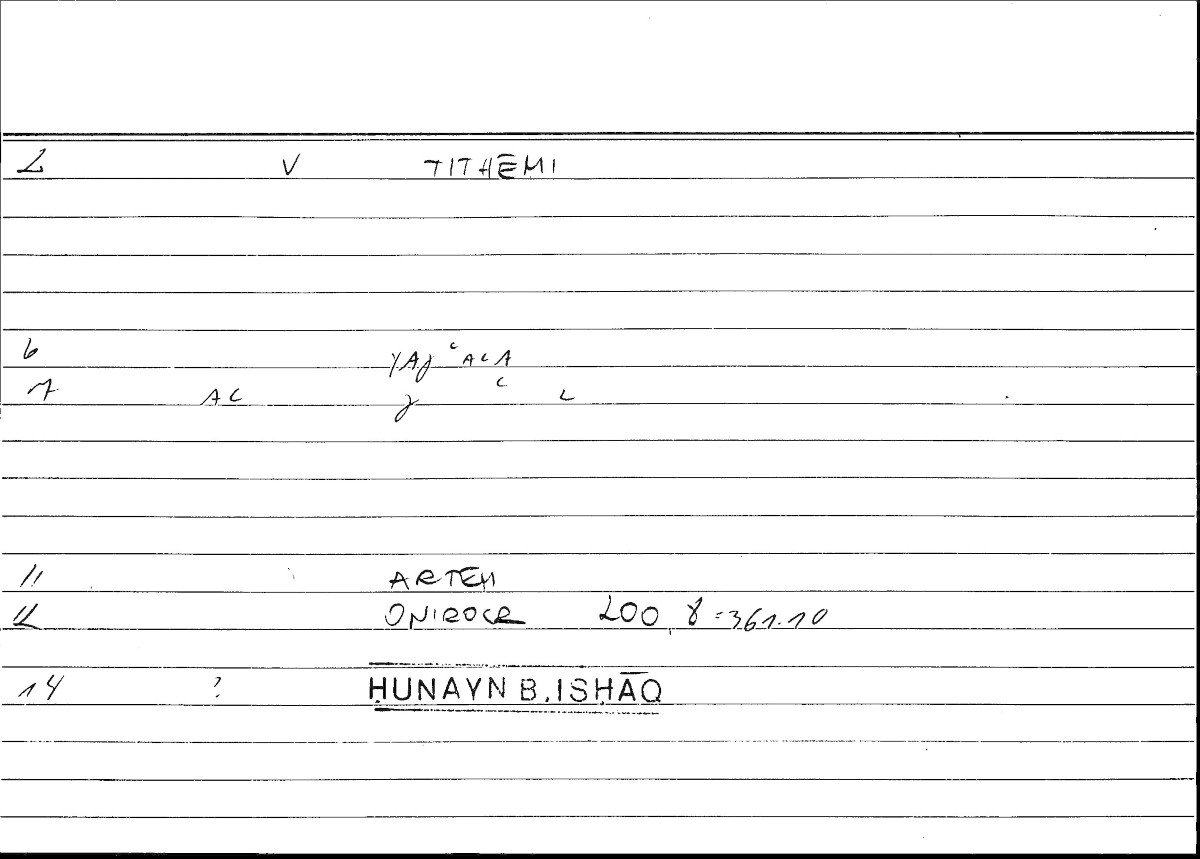 2 V TITHĒMI
6 YAJ ʿALA
7 AL J ʿ L
11 ARTEM
12 ONIROCR 200,8=361.10
14 ? ḤUNAYN B. ISḤĀQ